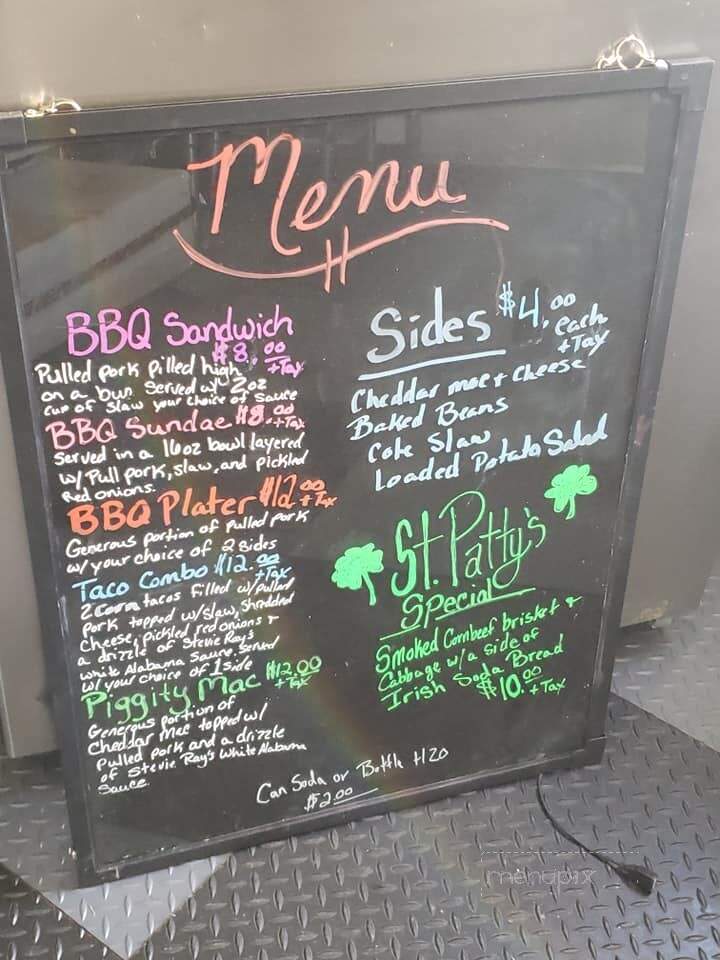 Menu
BBQ Sandwich
$8.00
+Tax
Pulled pork pilled high
on a bun served w/ 2oz
cup of slaw your choice of sauce
BBQ Sundae $8.00
+Tax
Served in a 16oz bowl layered
w/ Pull pork, slaw, and pickled
Red onions.
BBQ Plater $12.00
+Tax
Generous portion of pulled pork
w/ your choice of 2 sides
Taco Combo $12.00
+Tax
2 corn tacos filled w/ pulled
pork topped w/ slaw, shredded
cheese, pickled red onions &
a drizzle of Stevie Ray's
white Alabama sauce. Served
w/ your choice of 1 side
Piggity Mac $12.00
+Tax
Generous portion of
Cheddar mac topped w/
pulled pork and a drizzle
of Stevie Ray's White Alabama
Sauce.
Sides $4.00
each
+Tax
Cheddar mac & Cheese
Baked Beans
Cole Slaw
Loaded Potato Salad
St. Patty's
Special
Smoked Cornbeef brisket &
Cabbage w/ a side of
Irish Soda Bread
$10.00 + Tax
Can Soda or Bottle H20
$2.00
menupix